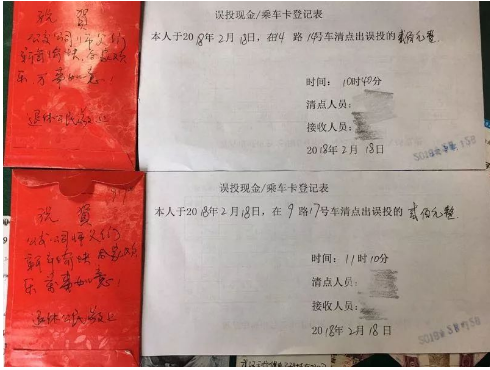 祝贺
公交公司师父们
新年愉快、合家欢
乐万事如意！
退休公民敬上
误投现金/乘车卡登记表
本人于2018年2月18日，在14路14号车清点出误投的贰佰元整
时间：10时40分
清点人员：
接收人员：
2018年2月18日
祝贺
公交公司师父们
新年愉快合家欢
乐万事如意！
退休公民敬上
误投现金/乘车卡登记表
本人于2018年2月18日，在9路17号车清点出误投的贰佰元整
时间：11时10分
清点人员：
接收人员：
2018年2月18日